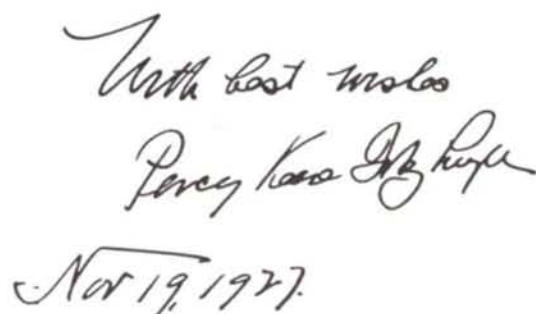 With best wishes
Percy Keese Fitzhugh
Nov 19, 1927.